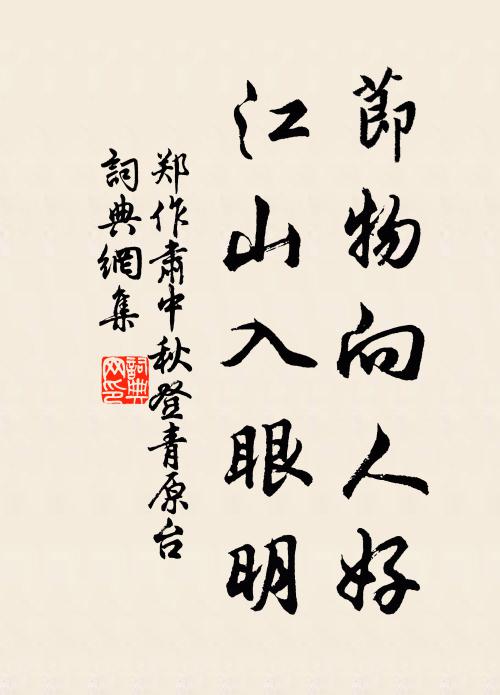 節物向人好
江山入眼明
郑作肃中秋登青原台
詞典網集
詞典
网印